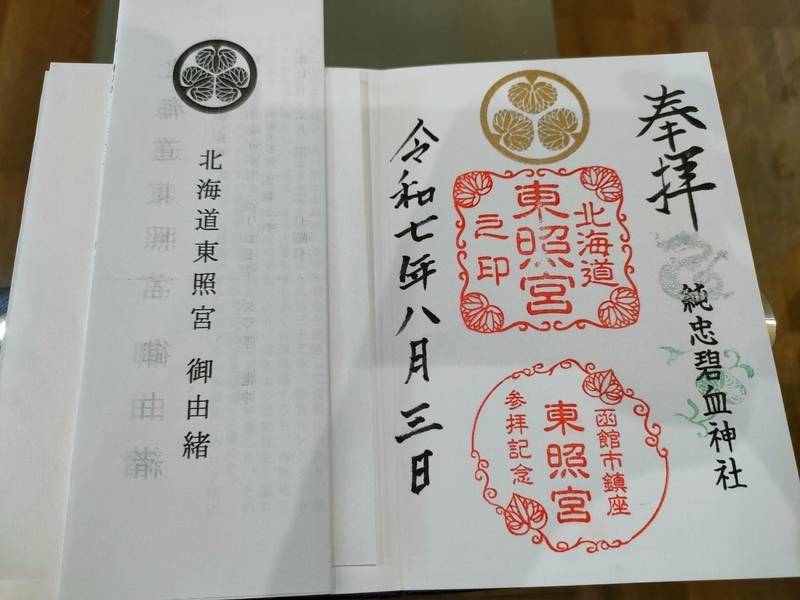 北海道東照宮 御由緒
奉拝
純忠碧血神社
北海道
東照宮
之印
函館市鎮座
東照宮
参拝記念
令和七年八月三日